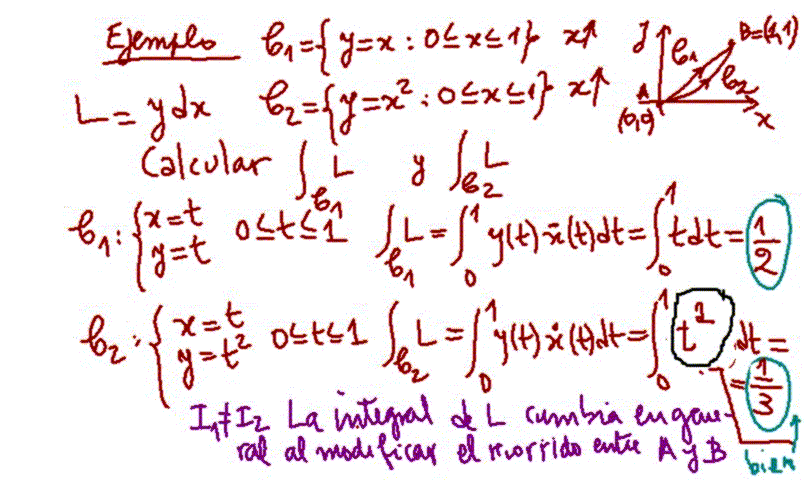 Ejemplo C₁={y=x : 0≤x≤1} x↑
L=ydx C₂={y=x² : 0≤x≤1} x↑
y B=(1,1) C₁ C₂ A (0,0) x
Calcular ∫_C₁ L y ∫_C₂ L
C₁: {x=t y=t 0≤t≤1 ∫_C₁ L = ∫₀¹ y(t) ẋ(t)dt = ∫₀¹ tdt = 1/2
C₂: {x=t y=t² 0≤t≤1 ∫_C₂ L = ∫₀¹ y(t) ẋ(t)dt = ∫₀¹ t² dt =
= 1/3
I₁≠I₂ La integral de L cambia en gene-
ral al modificar el recorrido entre A y B
bien